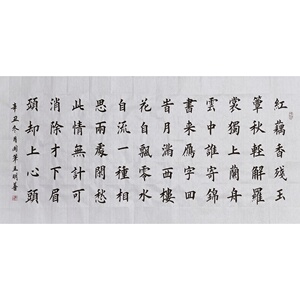 紅藕香残玉
簟秋輕解羅
裳獨上蘭舟
雲中誰寄錦
書来雁字回
旹月滿西樓
花自飄零水
自流一種相
思兩處閑愁
此情無計可
消除才下眉
頭却上心頭
辛丑冬月